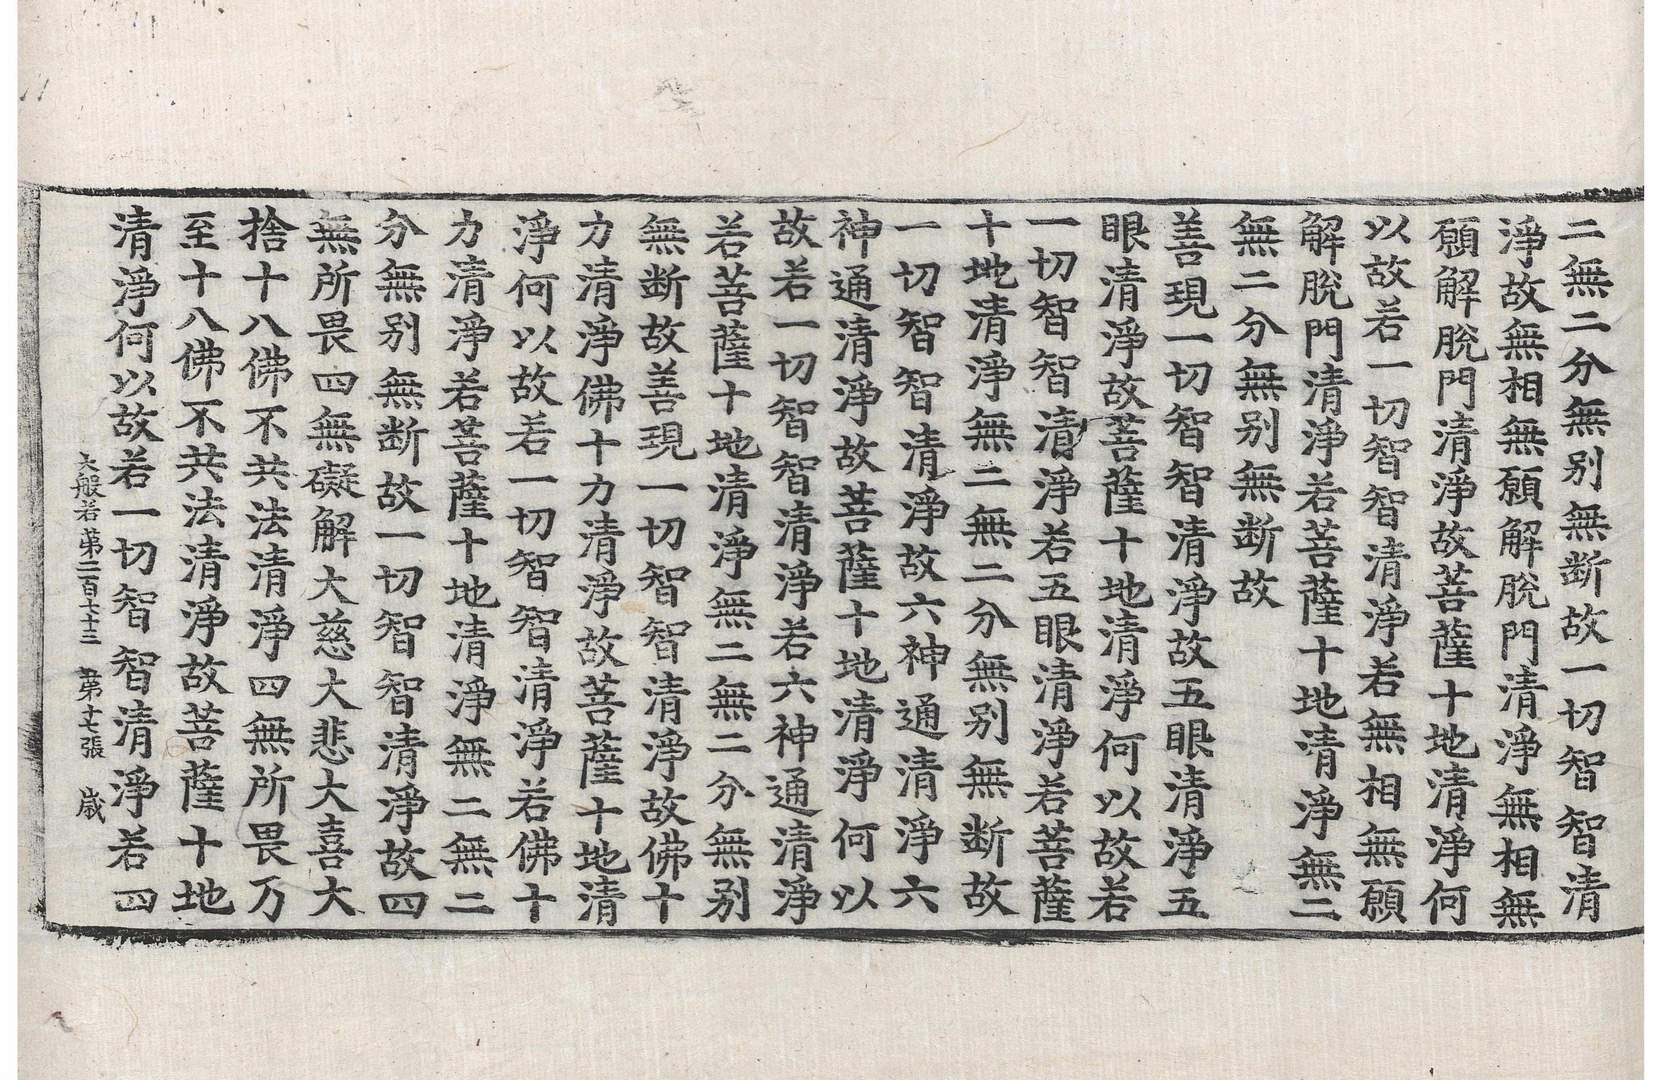 二無二分無别無断故一切智智清
淨故無相無願解脫門清淨無相無
願解脫門清淨故菩薩十地清淨何
以故若一切智智清淨若無相無願
解脫門清淨若菩薩十地清淨無二
無二分無别無断故
善現一切智智清淨故五眼清淨五
眼清淨故菩薩十地清淨何以故若
一切智智清淨若五眼清淨若菩薩
十地清淨無二無二分無别無断故
一切智智清淨故六神通清淨六
神通清淨故菩薩十地清淨何以
故若一切智智清淨若六神通清淨
若菩薩十地清淨無二無二分無别
無断故善現一切智智清淨故佛十
力清淨佛十力清淨故菩薩十地清
淨何以故若一切智智清淨若佛十
力清淨若菩薩十地清淨無二無二
分無别無断故一切智智清淨故四
無所畏四無礙解大慈大悲大喜大
捨十八佛不共法清淨四無所畏乃
至十八佛不共法清淨故菩薩十地
清淨何以故若一切智智清淨若四
大般若第二百七十三 第十七張 嵗